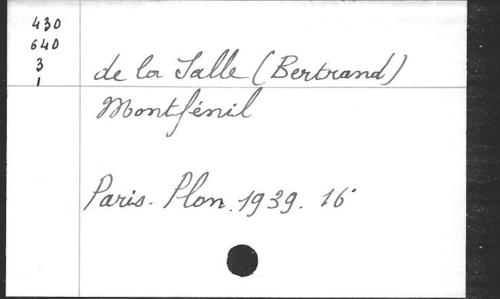 430
640
3
1
de la Salle (Bertrand)
Montfénil
Paris. Plon. 1939. 16°